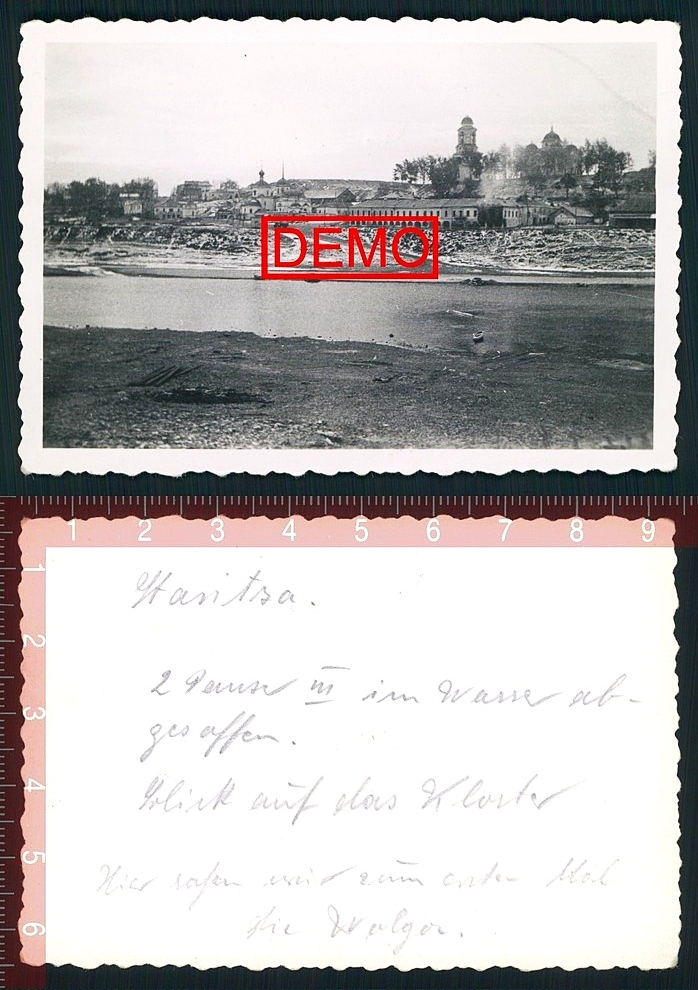 DEMO
1 2 3 4 5 6 7 8 9
1
2
3
4
5
6
Staritza.
2 Panzer III im Wasser ab-
gesoffen.
Blick auf das Kloster
Hier sahen wir zum ersten Mal
die Wolga.